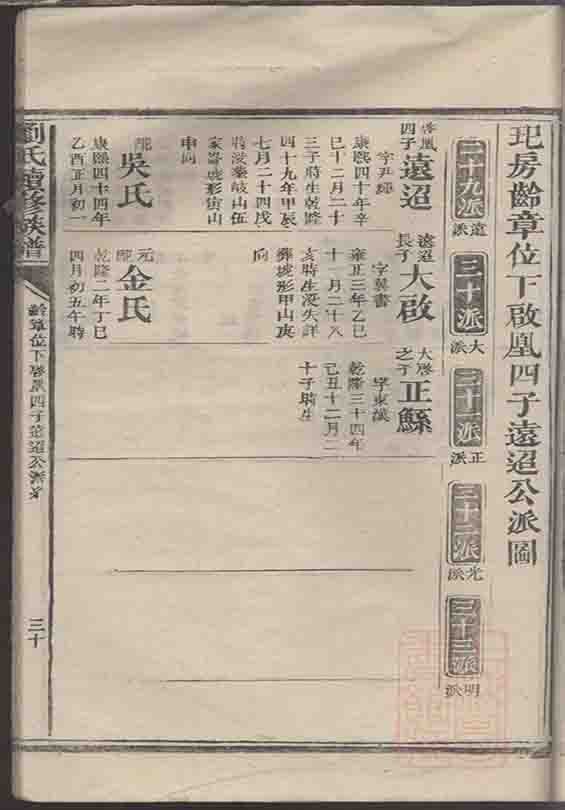 玘房齡章位下啟凰四子遠迢公派圖
二十九派
遠派
三十派
大派
三十一派
正派
三十二派
光派
三十三派
明派
啓凰四子
遠迢
字尹經
康熙四十年辛
巳十二月二十
三子時生乾隆
四十九年甲辰
七月二十四戌
時没葉岐山伍
家
形寅山
申向
配
吳氏
康熙四十四年
乙酉正月初一
遠迢長子
大啟
字翼書
雍正三年乙巳
十一月二十八
亥時生没失詳
形甲山庚
向
元配
金氏
乾隆二年丁巳
四月初五午時
大啓之子
正鯀
字東溪
乾隆三十四年
己丑十二月二
十子時生
劉氏續修族譜
齡章位下啓凰四子遠迢公派
三十